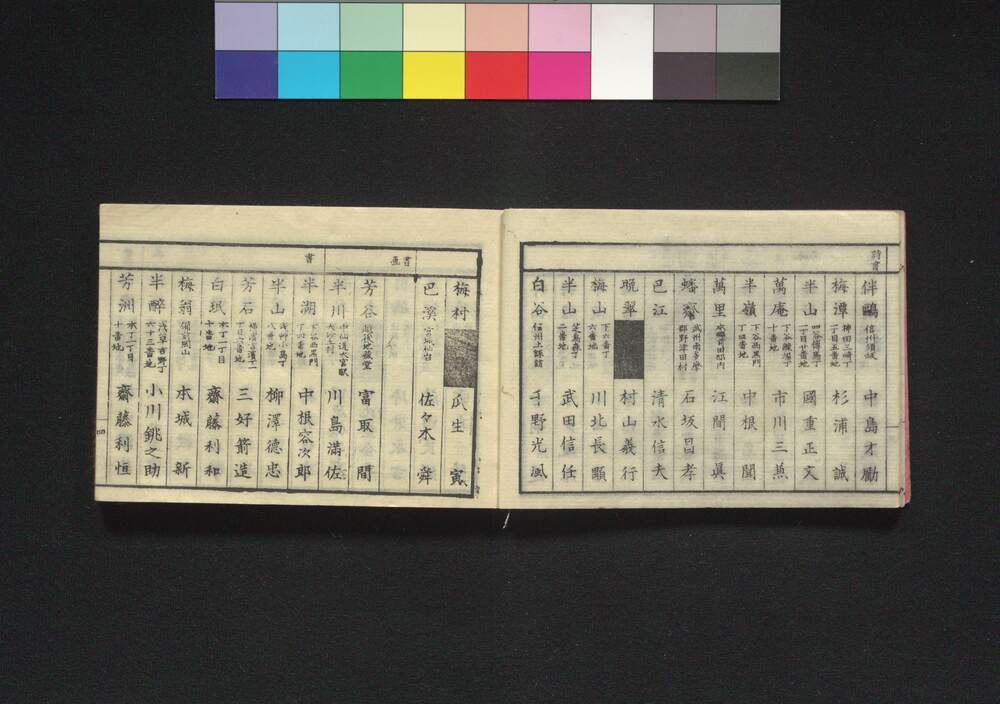 詩書
伴鷗 信州須坂 中島才勵
梅潭 神田三崎丁二丁目五番地 杉浦誠
半山 四谷傳馬丁一丁目廿番地 國重正文
萬庵 下谷 十番地 市川三蕉
半嶺 下谷西黒門丁四番地 中根聞
萬里 前田邸内 江間眞
蟠齋 武州南多摩郡野津田村 石坂昌孝
巴江 清水信夫
晩翠 村山義行
梅山 下六番丁六番地 川北長顒
半山 芝烏森丁二番地 武田信任
白谷 信州上諏訪 千野光風
書畫
梅村 瓜生寅
巴溪 宮城仙台 佐々木舜
芳谷 地蔵堂 富取間
書
半川 中仙道大宮駅 川島滿佐
半湖 下谷西黒門丁四番地 中根容次郎
半山 八番地 柳澤德忠
芳石 三好箭造
白珉 木丁一丁目十番地 齋藤利和
梅翁 備前岡山 本城新
半醉 浅草吉野丁六十三番地 小川銚之助
芳洲 木丁一丁目十番地 齋藤利恒